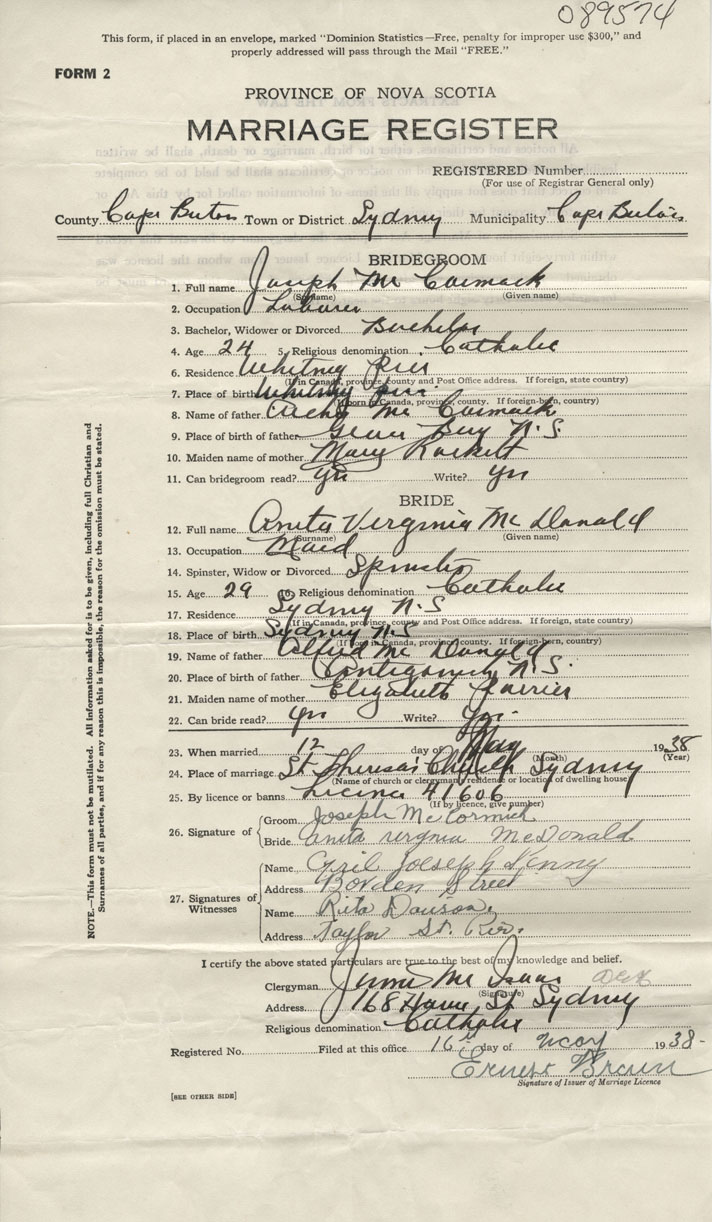 089574
This form, if placed in an envelope, marked "Dominion Statistics—Free, penalty for improper use $300," and
properly addressed will pass through the Mail "FREE."
FORM 2
PROVINCE OF NOVA SCOTIA
MARRIAGE REGISTER
REGISTERED Number
(For use of Registrar General only)
County Cape Breton Town or District Sydney Municipality Cape Breton
BRIDEGROOM
1. Full name Joseph Mc Cormack
(Surname) (Given name)
2. Occupation Laborer
3. Bachelor, Widower or Divorced Bachelor
4. Age 24 5. Religious denomination Catholic
6. Residence Whitney Pier
(If in Canada, province, county and Post Office address. If foreign, state country)
7. Place of birth Whitney Pier
(If born in Canada, province, county. If foreign-born, country)
8. Name of father Mc Cormack
9. Place of birth of father Glace Bay N.S.
10. Maiden name of mother Mary
11. Can bridegroom read? Yes Write? Yes
BRIDE
12. Full name Anita Verginia Mc Donald
(Surname) (Given name)
13. Occupation Maid
14. Spinster, Widow or Divorced Spinster
15. Age 29 16. Religious denomination Catholic
17. Residence Sydney N.S
(If in Canada, province, county and Post Office address. If foreign, state country)
18. Place of birth Sydney N.S
(If born in Canada, province, county. If foreign-born, country)
19. Name of father Alfred Mc Donald
20. Place of birth of father Antigonish N.S.
21. Maiden name of mother Elizabeth
22. Can bride read? Yes Write? Yes
23. When married 12 day of May 1938
(Month) (Year)
24. Place of marriage St Theresa's Church Sydney
(Name of church or clergyman's residence or location of dwelling house)
25. By licence or banns Licence 41606
(If by licence, give number)
26. Signature of
Groom Joseph McCormick
Bride Anita Verginia McDonald
27. Signatures of Witnesses
Name Cyril Joeseph
Address Borden Street
Name Rita Dawson
Address Taylor St. Pier.
I certify the above stated particulars are true to the best of my knowledge and belief.
Clergyman Mc Isaac
(Signature)
Address 168 St Sydney
Religious denomination Catholic
Registered No. Filed at this office 16th day of May 1938-
Ernest Brown
Signature of Issuer of Marriage Licence
[SEE OTHER SIDE]
NOTE.—This form must not be mutilated. All information asked for is to be given, including full Christian and
Surnames of all parties, and if for any reason this is impossible, the reason for the omission must be stated.